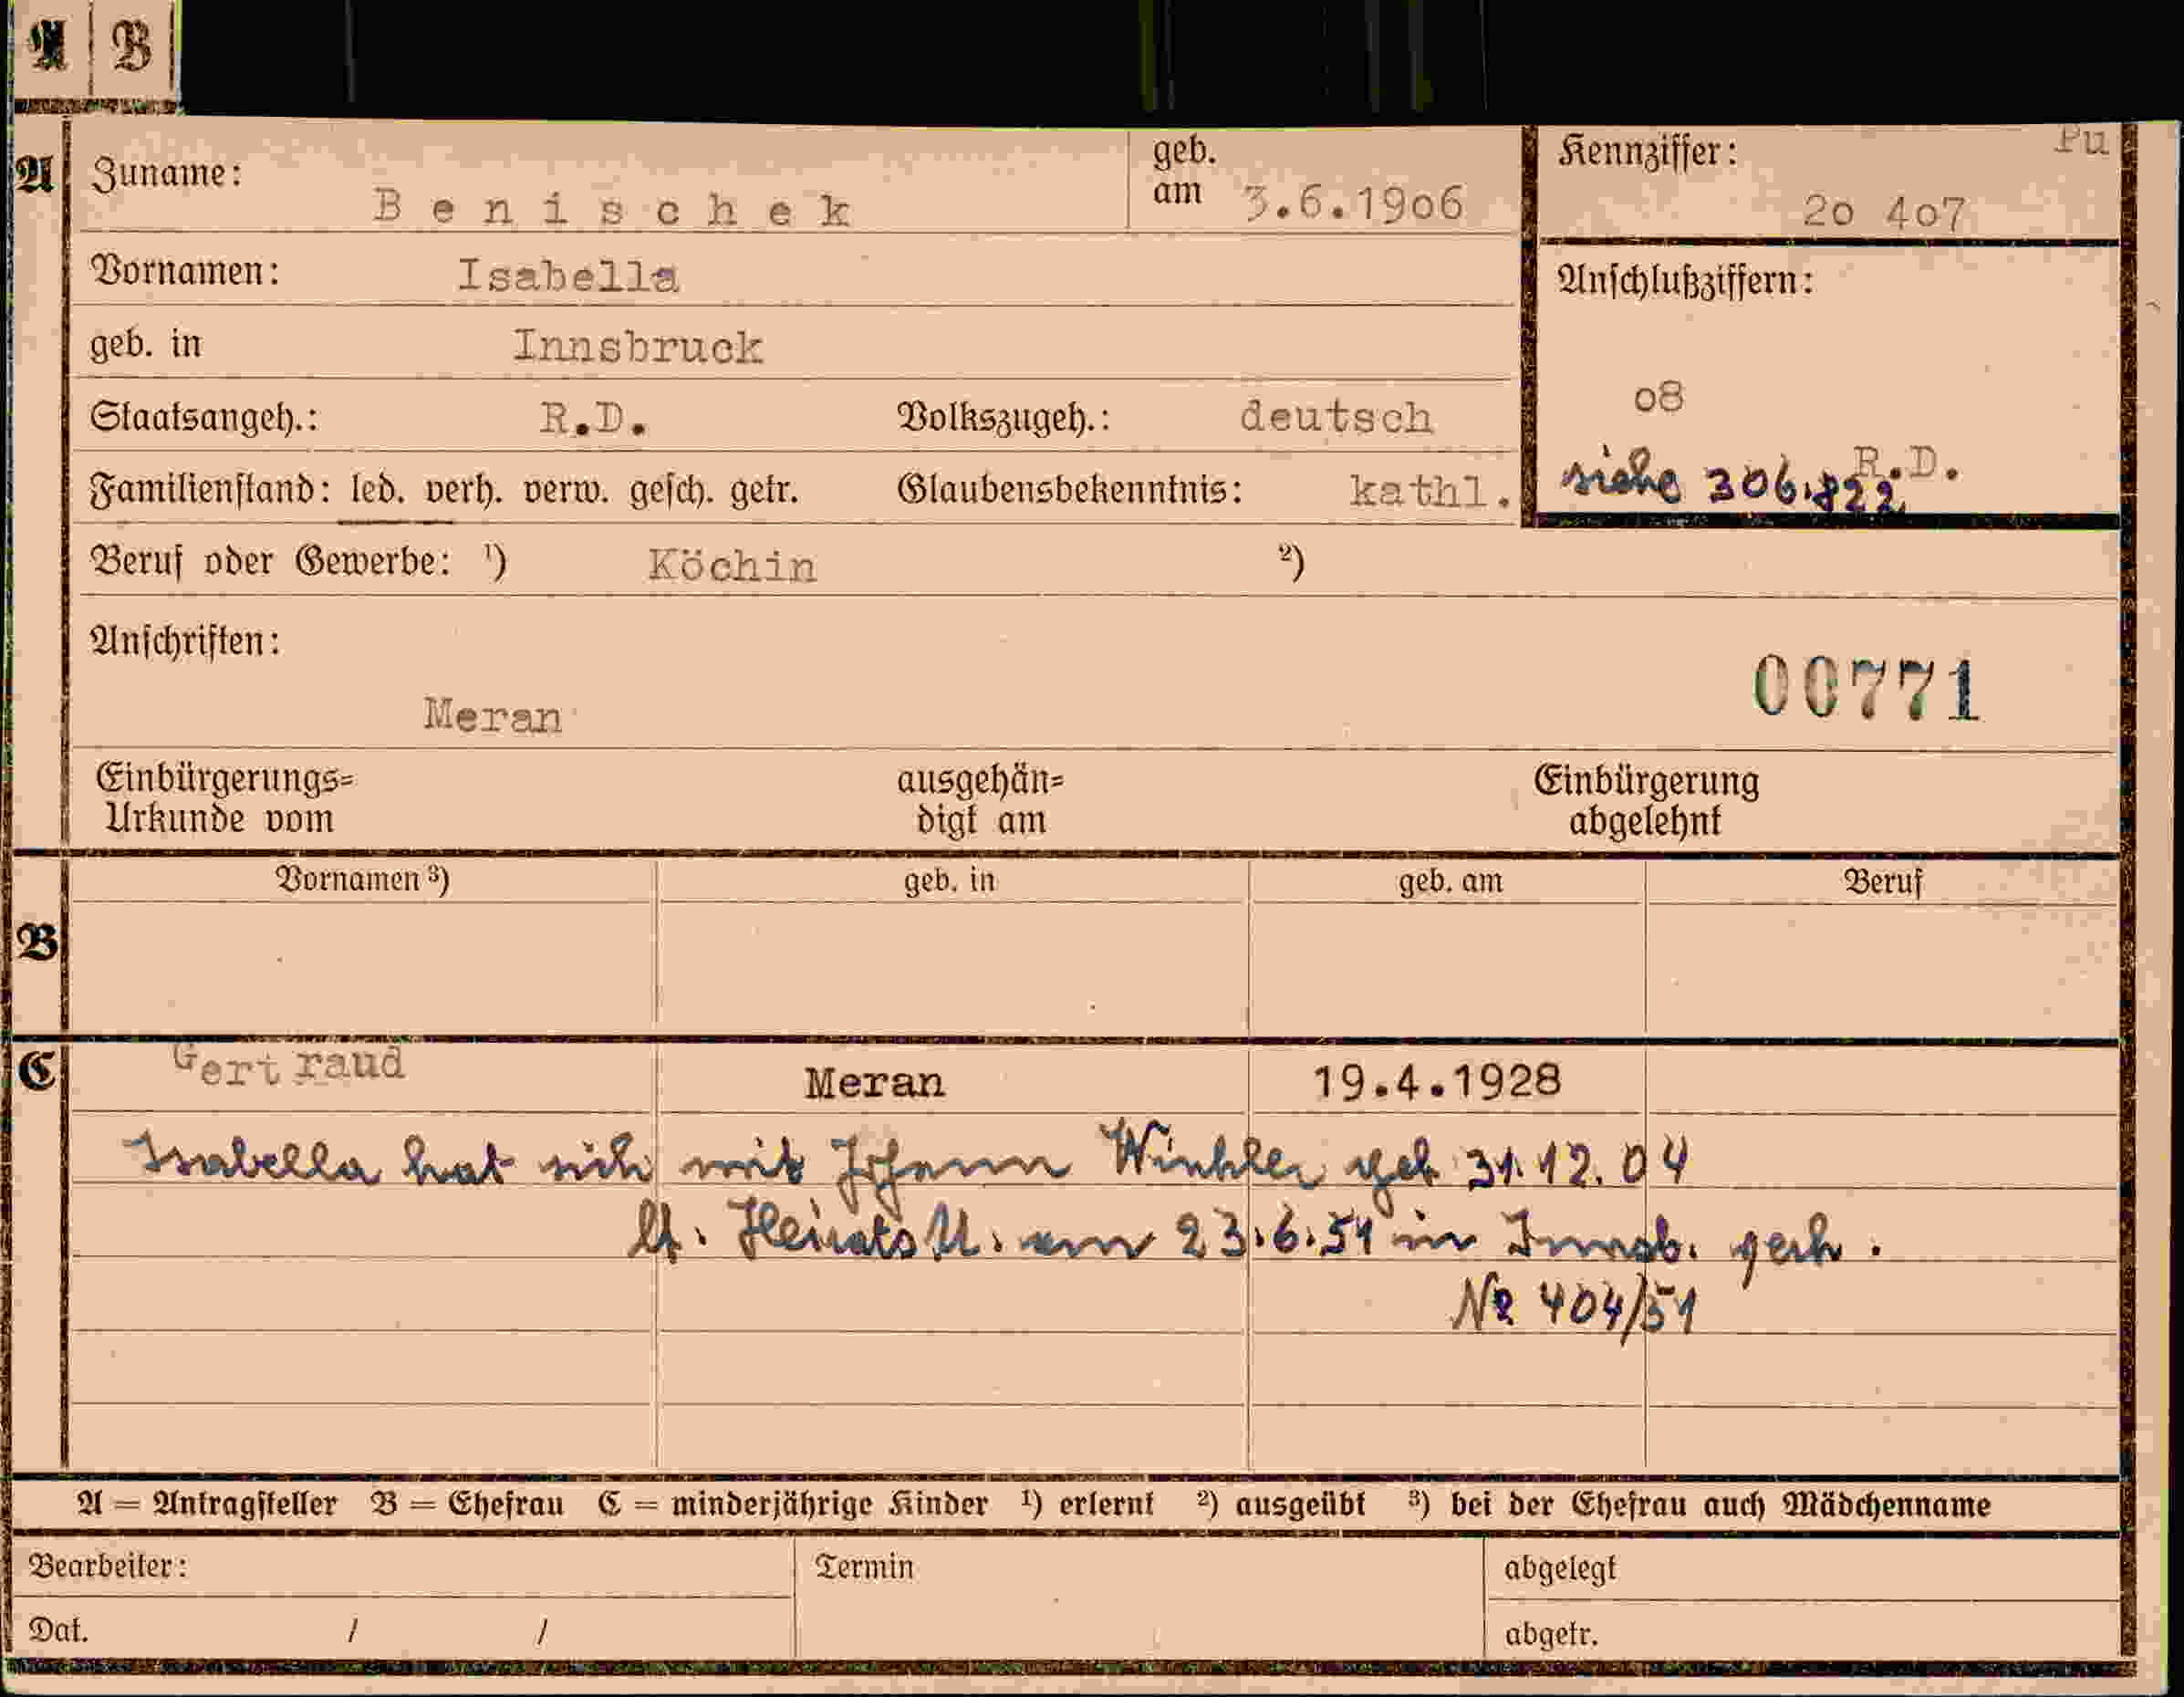 A B
A Zuname: Benischek geb. am 3.6.1906 Kennziffer: Pu
20 407
Vornamen: Isabella Anschlußziffern:
geb. in Innsbruck
Staatsangeh.: R.D. Volkszugeh.: deutsch 08
R.D.
Familienstand: led. verh. verw. gesch. getr. Glaubensbekenntnis: kathl. siehe 306.822
Beruf oder Gewerbe: ¹) Köchin ²)
Anschriften:
00771
Meran
Einbürgerungs= ausgehän= Einbürgerung
Urkunde vom digt am abgelehnt
Vornamen ³) geb. in geb. am Beruf
B
C Gertraud Meran 19.4.1928
Isabella hat sich mit Johann Winkler geb 31.12.04
lt. Heirats U. am 23.6.51 in Innsb. verh.
No 404/51
A = Antragsteller B = Ehefrau C = minderjährige Kinder ¹) erlernt ²) ausgeübt ³) bei der Ehefrau auch Mädchenname
Bearbeiter: Termin abgelegt
Dat. / / abgetr.